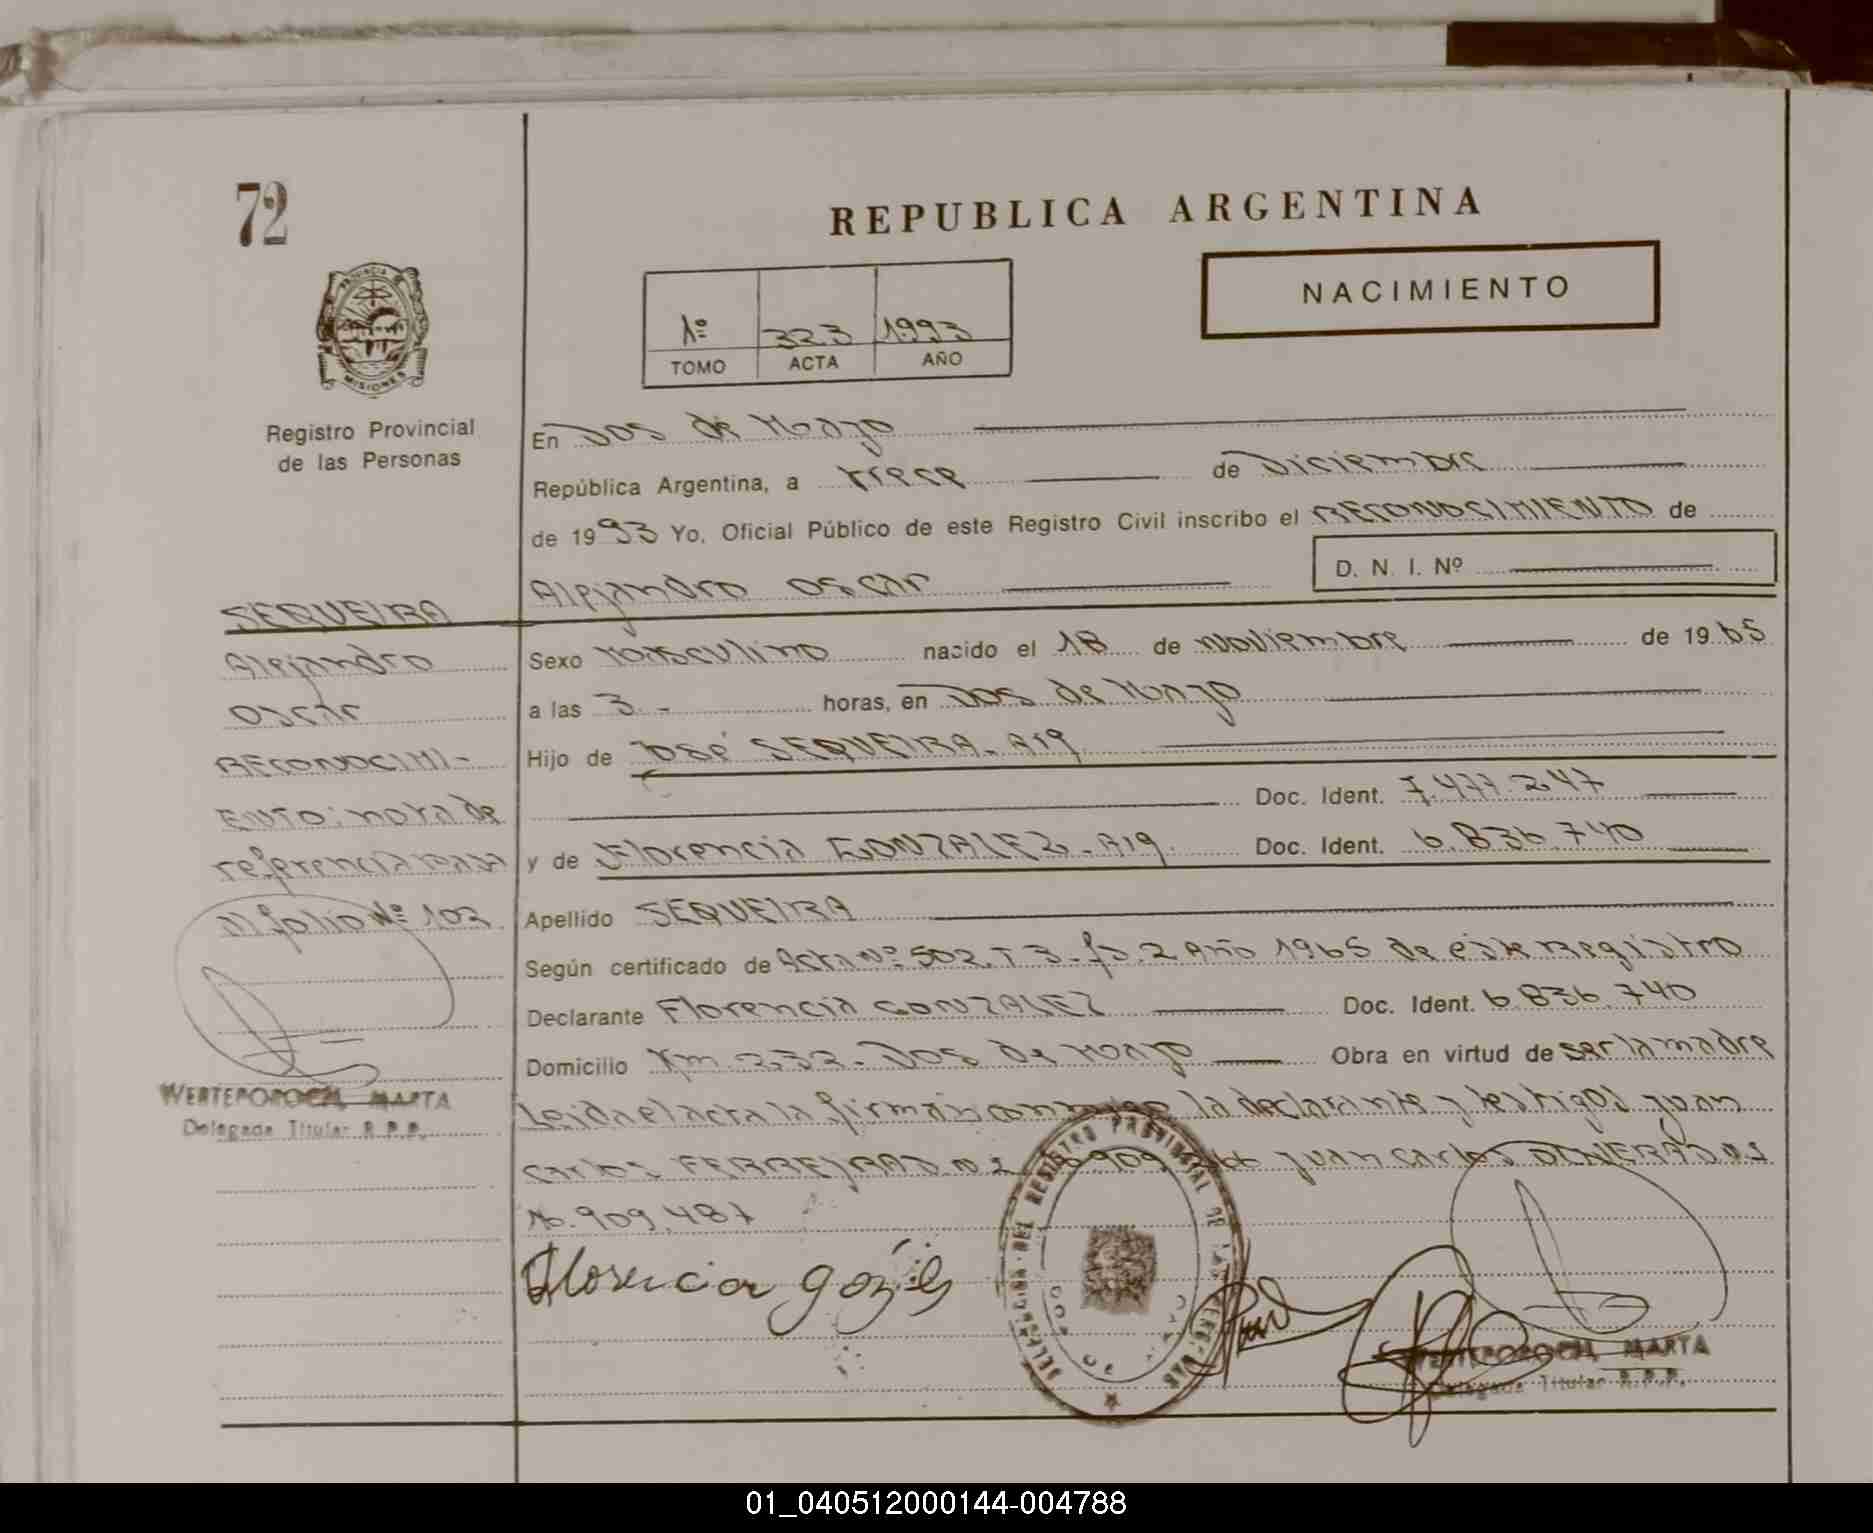 72
REPUBLICA ARGENTINA
NACIMIENTO
PROVINCIA DE
MISIONES
1º 323 1993
TOMO ACTA AÑO
Registro Provincial
de las Personas
En Dos de Mayo
República Argentina, a trece de Diciembre
de 1993 Yo, Oficial Público de este Registro Civil inscribo el RECONOCIMIENTO de
D. N. I. Nº
Alejandro Oscar
SEQUEIRA
Alejandro
Oscar
RECONOCIMI-
ENTO: nota de
referencia pasa
al folio Nº 102
WERTEPOROCH MARTA
Delegada Titular R.P.P.
Sexo Masculino nacido el 18 de noviembre de 1965
a las 3.- horas, en Dos de Mayo
Hijo de José SEQUEIRA. Arg.
Doc. Ident. 7.477.247
y de Florencia GONZALEZ. Arg. Doc. Ident. 6.836.740
Apellido SEQUEIRA
Según certificado de Acta Nº 502. T 3. fs. 2 Año 1965 de este Registro
Declarante Florencia GONZALEZ Doc. Ident. 6.836.740
Domicilio Km. 232. Dos de Mayo Obra en virtud de ser la madre
Leida el acta la firman conmigo la declarante y testigos Juan
Carlos FERREYRA D N I Juan Carlos D N I
16.909.487
Florencia
DELEGACION DEL REGISTRO PROVINCIAL DE LAS PERSONAS
DOS DE MAYO
WERTEPOROCH MARTA
Delegada Titular R.P.P.
01_040512000144-004788